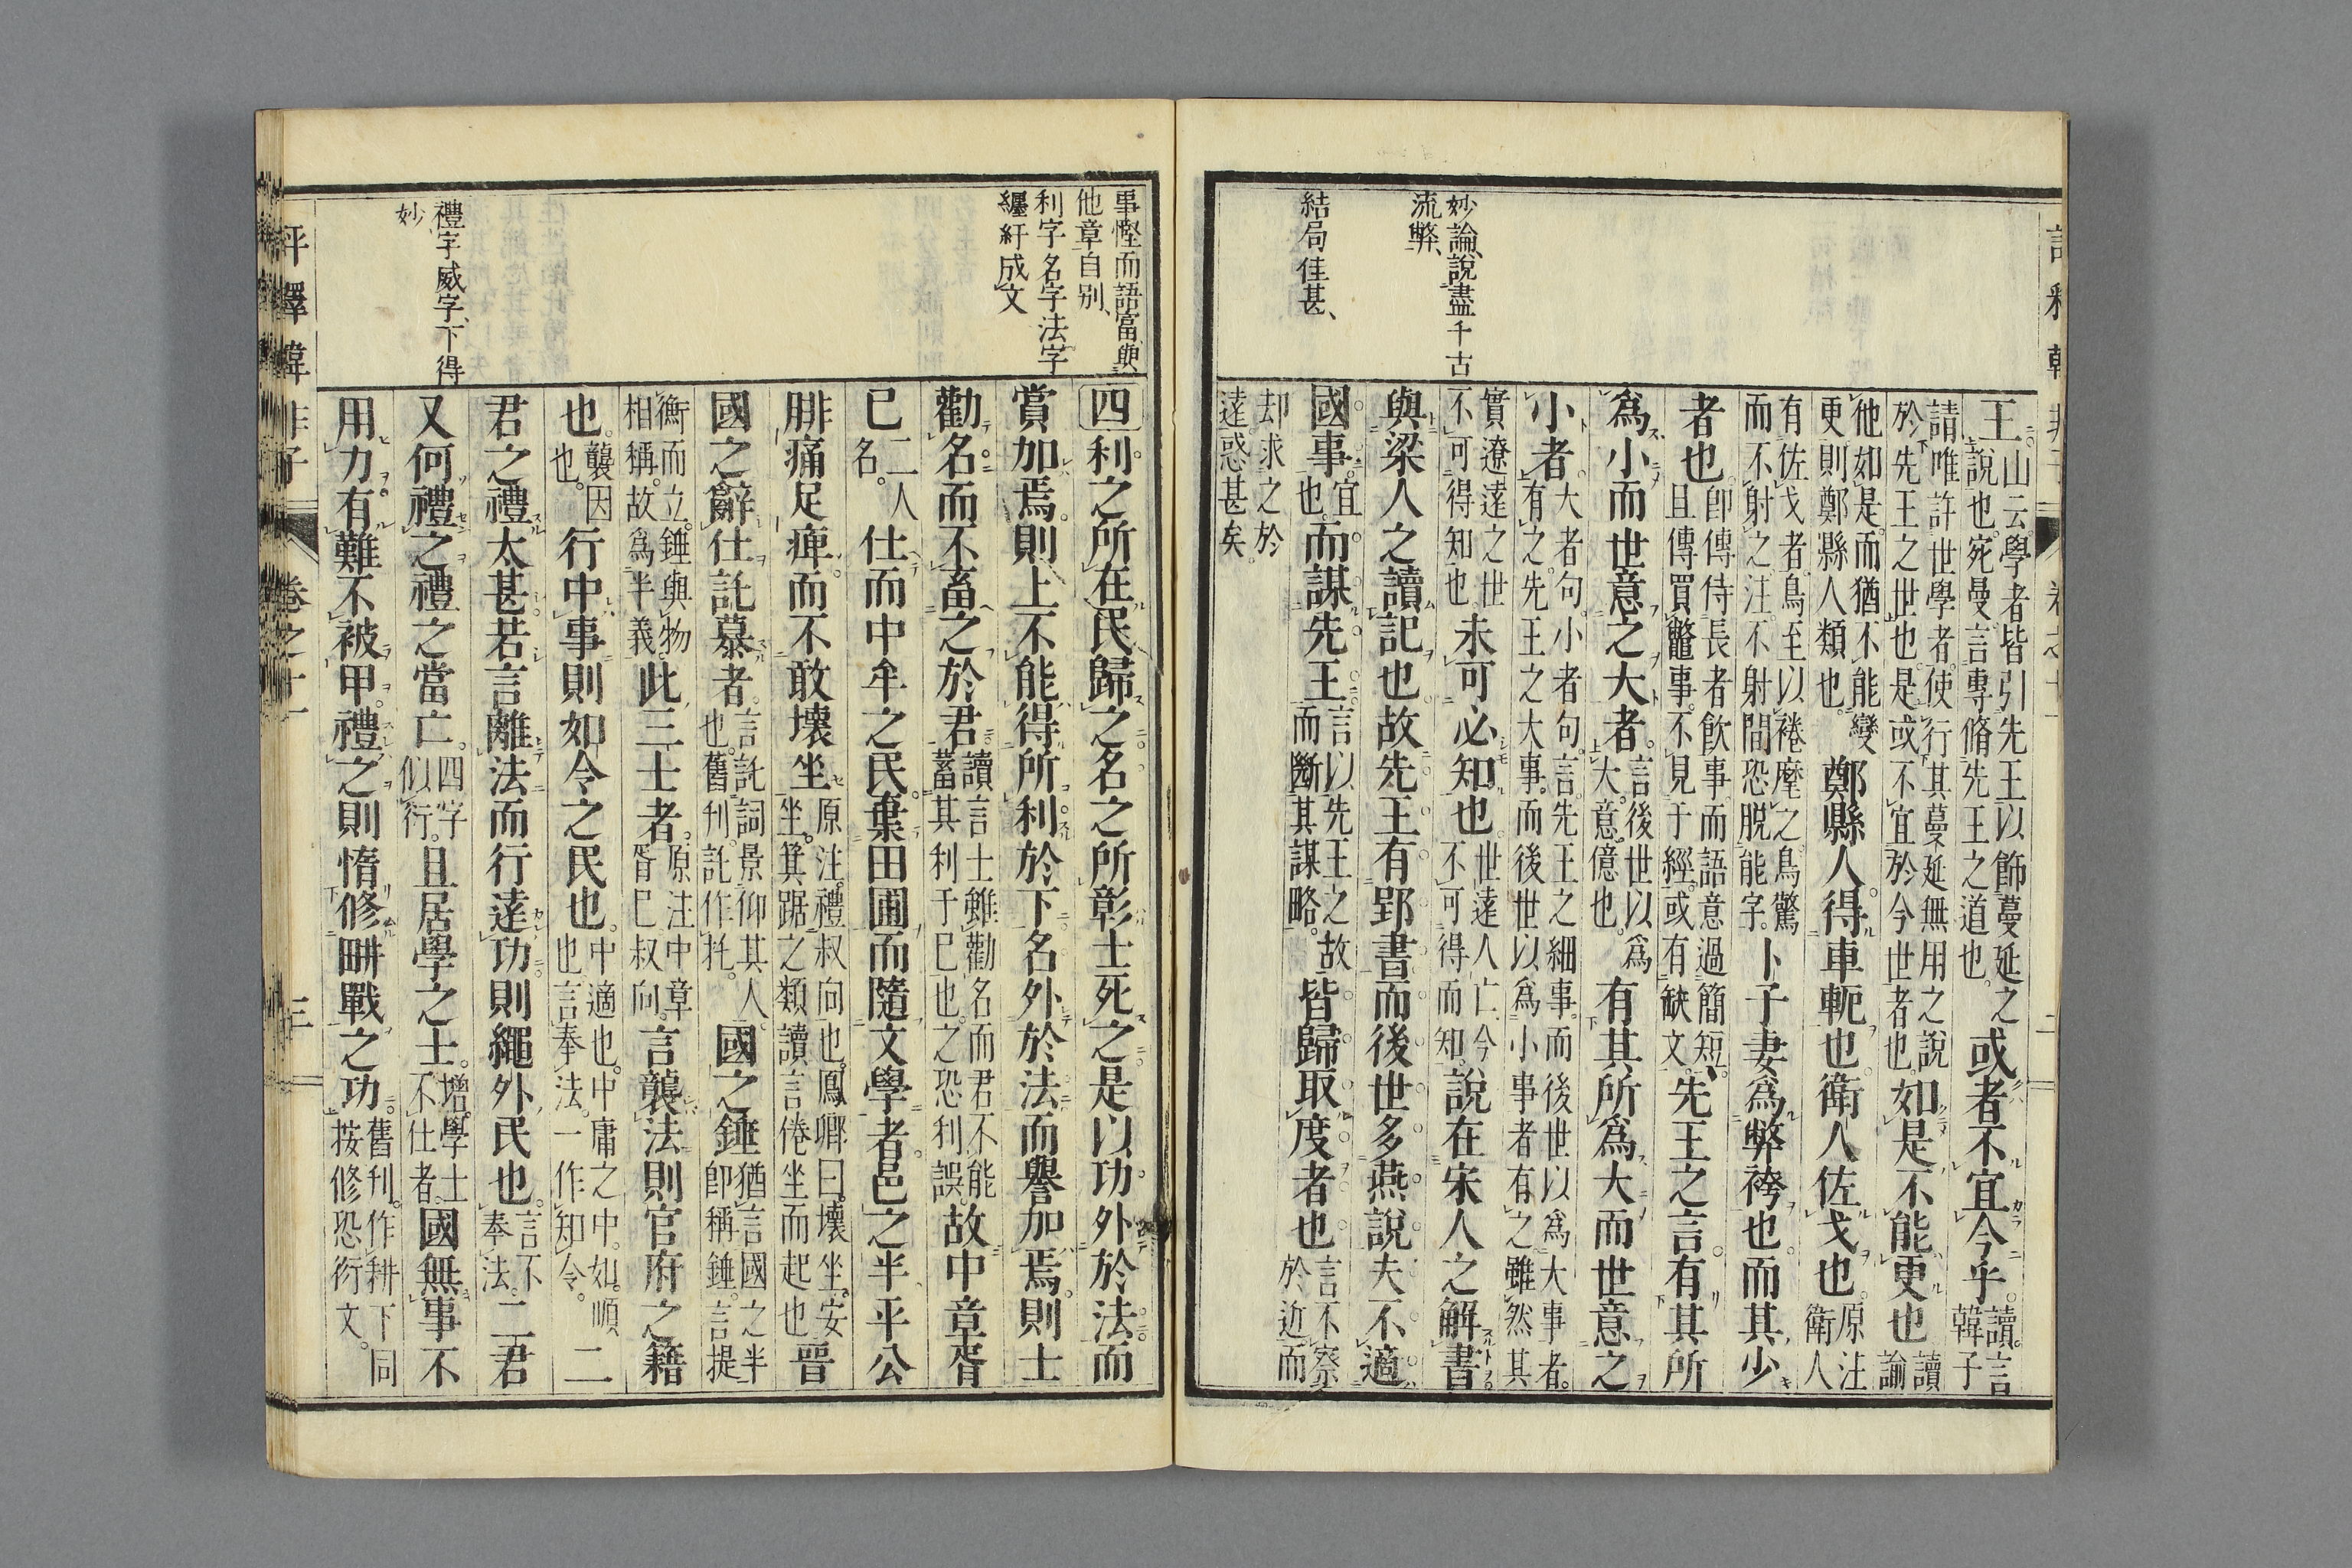 妙論說盡千古
流弊
結局佳甚
王山云學者皆引先王以飾蔓延之說也宛曼言專脩先王之道也或者不宜今乎讀言韓子
請唯許世學者使行其蔓延無用之說於先王之世也是或不宜於今世者也如是不能更也讀諭
他如是而猶不能變更則鄭縣人類也鄭縣人得車軛也衛人佐弋也原注衛人
有佐弋者鳥至以裷麾之鳥驚而不射之注不射間恐脫能字卜子妻爲弊袴也而其少
者也卽傳侍長者飲事而語意過簡短且傳買鼈事不見于經或有缺文先王之言有其所
爲小而世意之大者言後世以爲大意億也有其所爲大而世意之
小者大者句小者句言先王之細事而後世以爲大事者有之先王之大事而後世以爲小事者有之雖然其
實遼遠之世不可得知也未可必知也世遠人亡今不可得而知說在宋人之解書
與梁人之讀記也故先王有郢書而後世多燕說夫不適
國事宜也而謀先王言以先王之故而斷其謀略皆歸取度者也言不察於近而
却求之於遠惑甚矣
事慳而語富與
他章自別
利字名字法字
纏紆成文
禮字威字下得
妙
四利之所在民歸之名之所彰士死之是以功外於法而
賞加焉則上不能得所利於下名外於法而譽加焉則士
勸名而不畜之於君讀言士雖勸名而君不能蓄其利于己也之恐利誤故中章胥
已二人名仕而中牟之民棄田圃而隨文學者邑之半平公
腓痛足痺而不敢壞坐原注禮叔向也鳳卿曰壞坐安坐箕踞之類讀言倦坐而起也晉
國之辭仕託慕者言託詞景仰其人也舊刊託作托國之錘猶言國之半卽稱錘言提
衡而立錘與物相稱故爲半義此三士者原注中章胥已叔向言襲法則官府之籍
也襲因也行中事則如令之民也中適也中庸之中如順也言奉法一作知令二
君之禮太甚若言離法而行遠功則繩外民也言不奉法二君
又何禮之禮之當亡四字似行且居學之士增學士不仕者國無事不
用力有難不被甲禮之則惰修畊戰之功舊刊作耕下同按修恐衍文
評釋韓非子
卷之十一
三